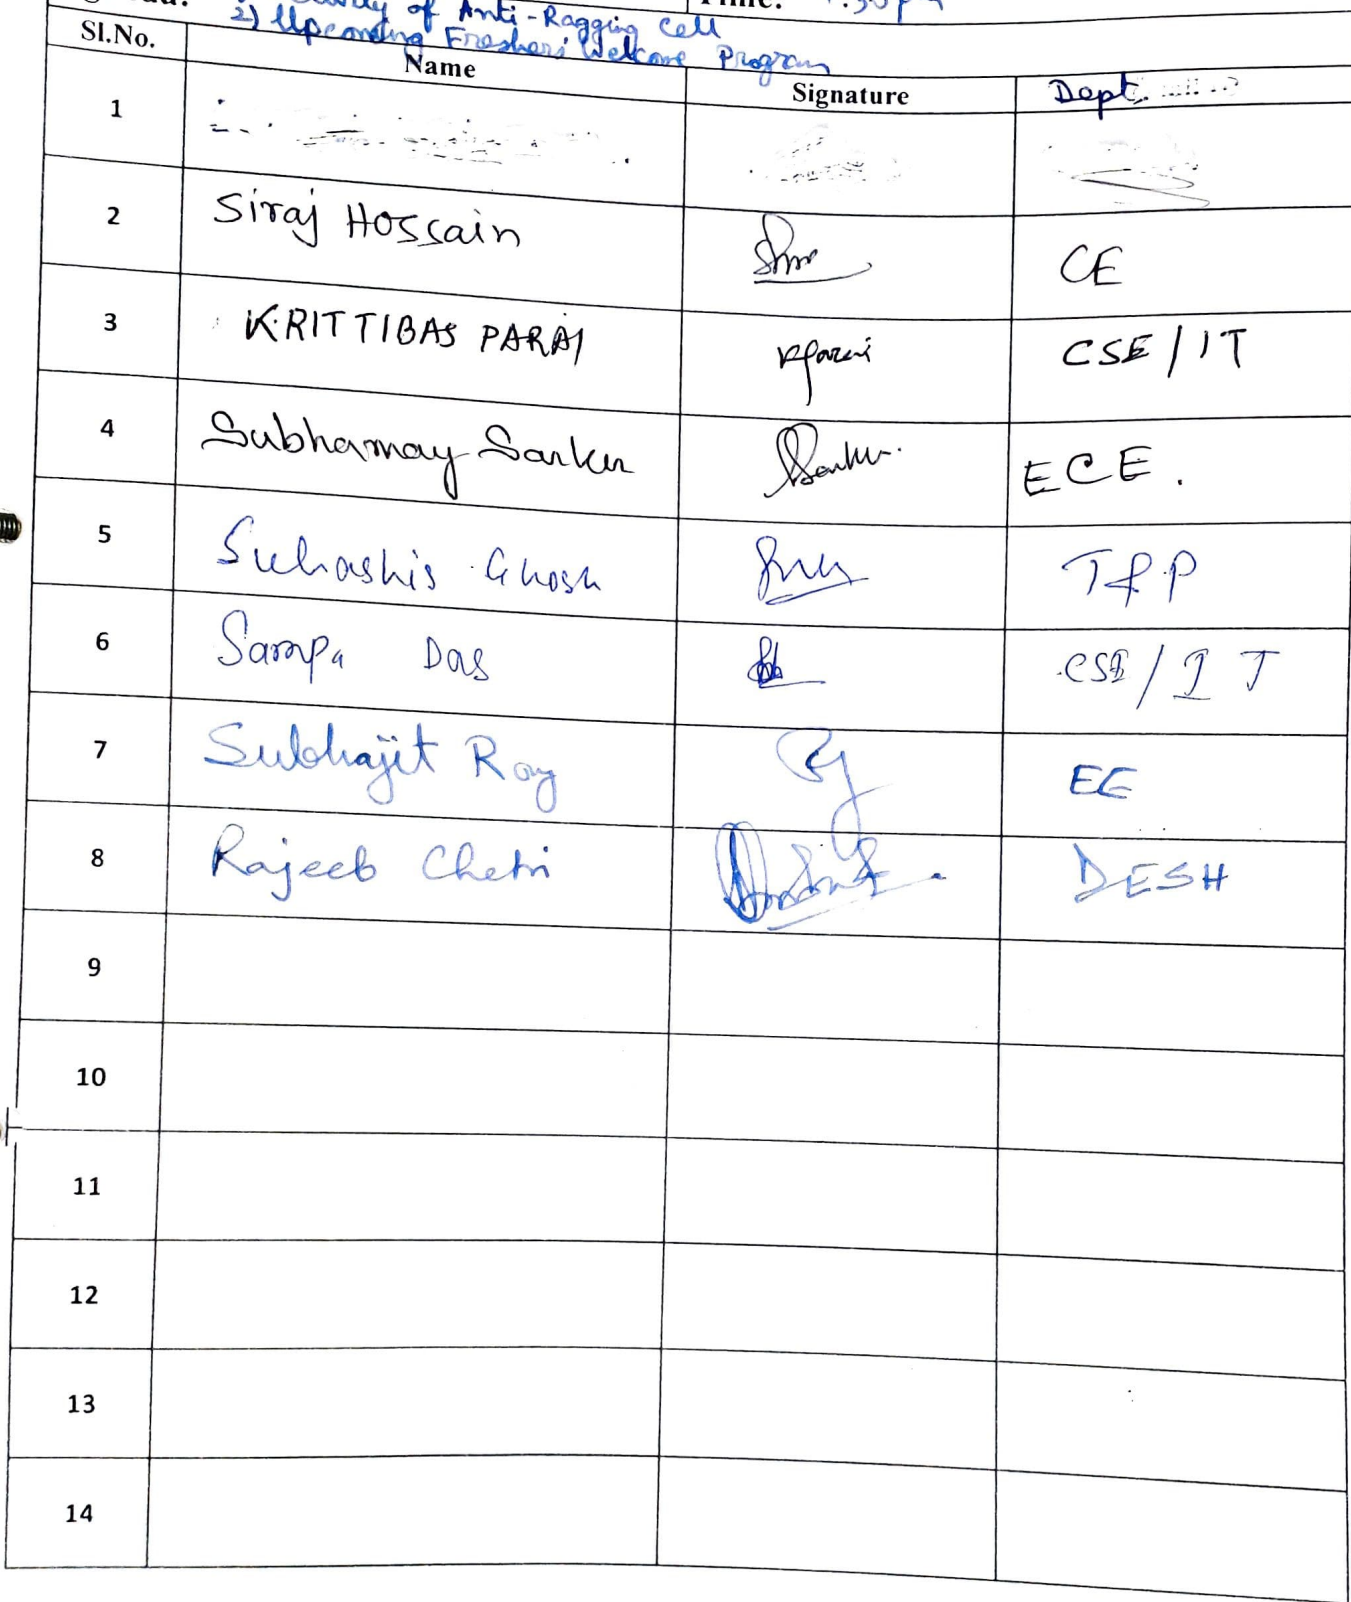 of Anti-Ragging Cell
2) Upcomding Freshers' Welcome Program
Sl.No. Name Signature Dept.
1
2 Siraj Hossain CE
3 KRITTIBAS PARAI CSE/IT
4 Subhamay Sarker Sarker ECE.
5 Suhashis Ghosh T&P
6 Sampa Das CSE/IT
7 Subhajit Roy EE
8 Rajeeb Chetri DESH
9
10
11
12
13
14